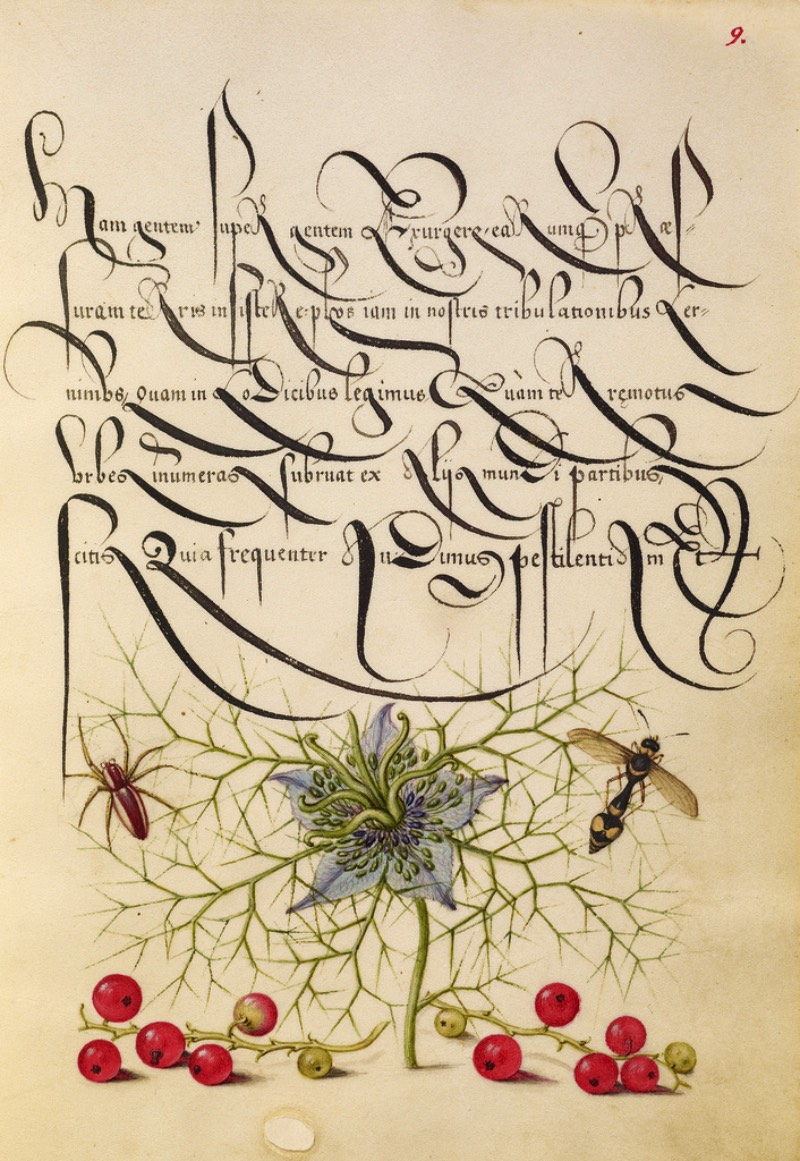 9.
Nam gentem supeR gentem Exurgere, eaRumq3 pRæs=
suram teRris insisteRe: plvs iam in nostris tribulationibus Cer=
nimvs, Quam in CoDicibus legimus. Quàm teRręmotus
Vrbes inumeras subruat ex Alijs munDi partibus,
scitis Quia frequenter AuDimus pestilentiam Et